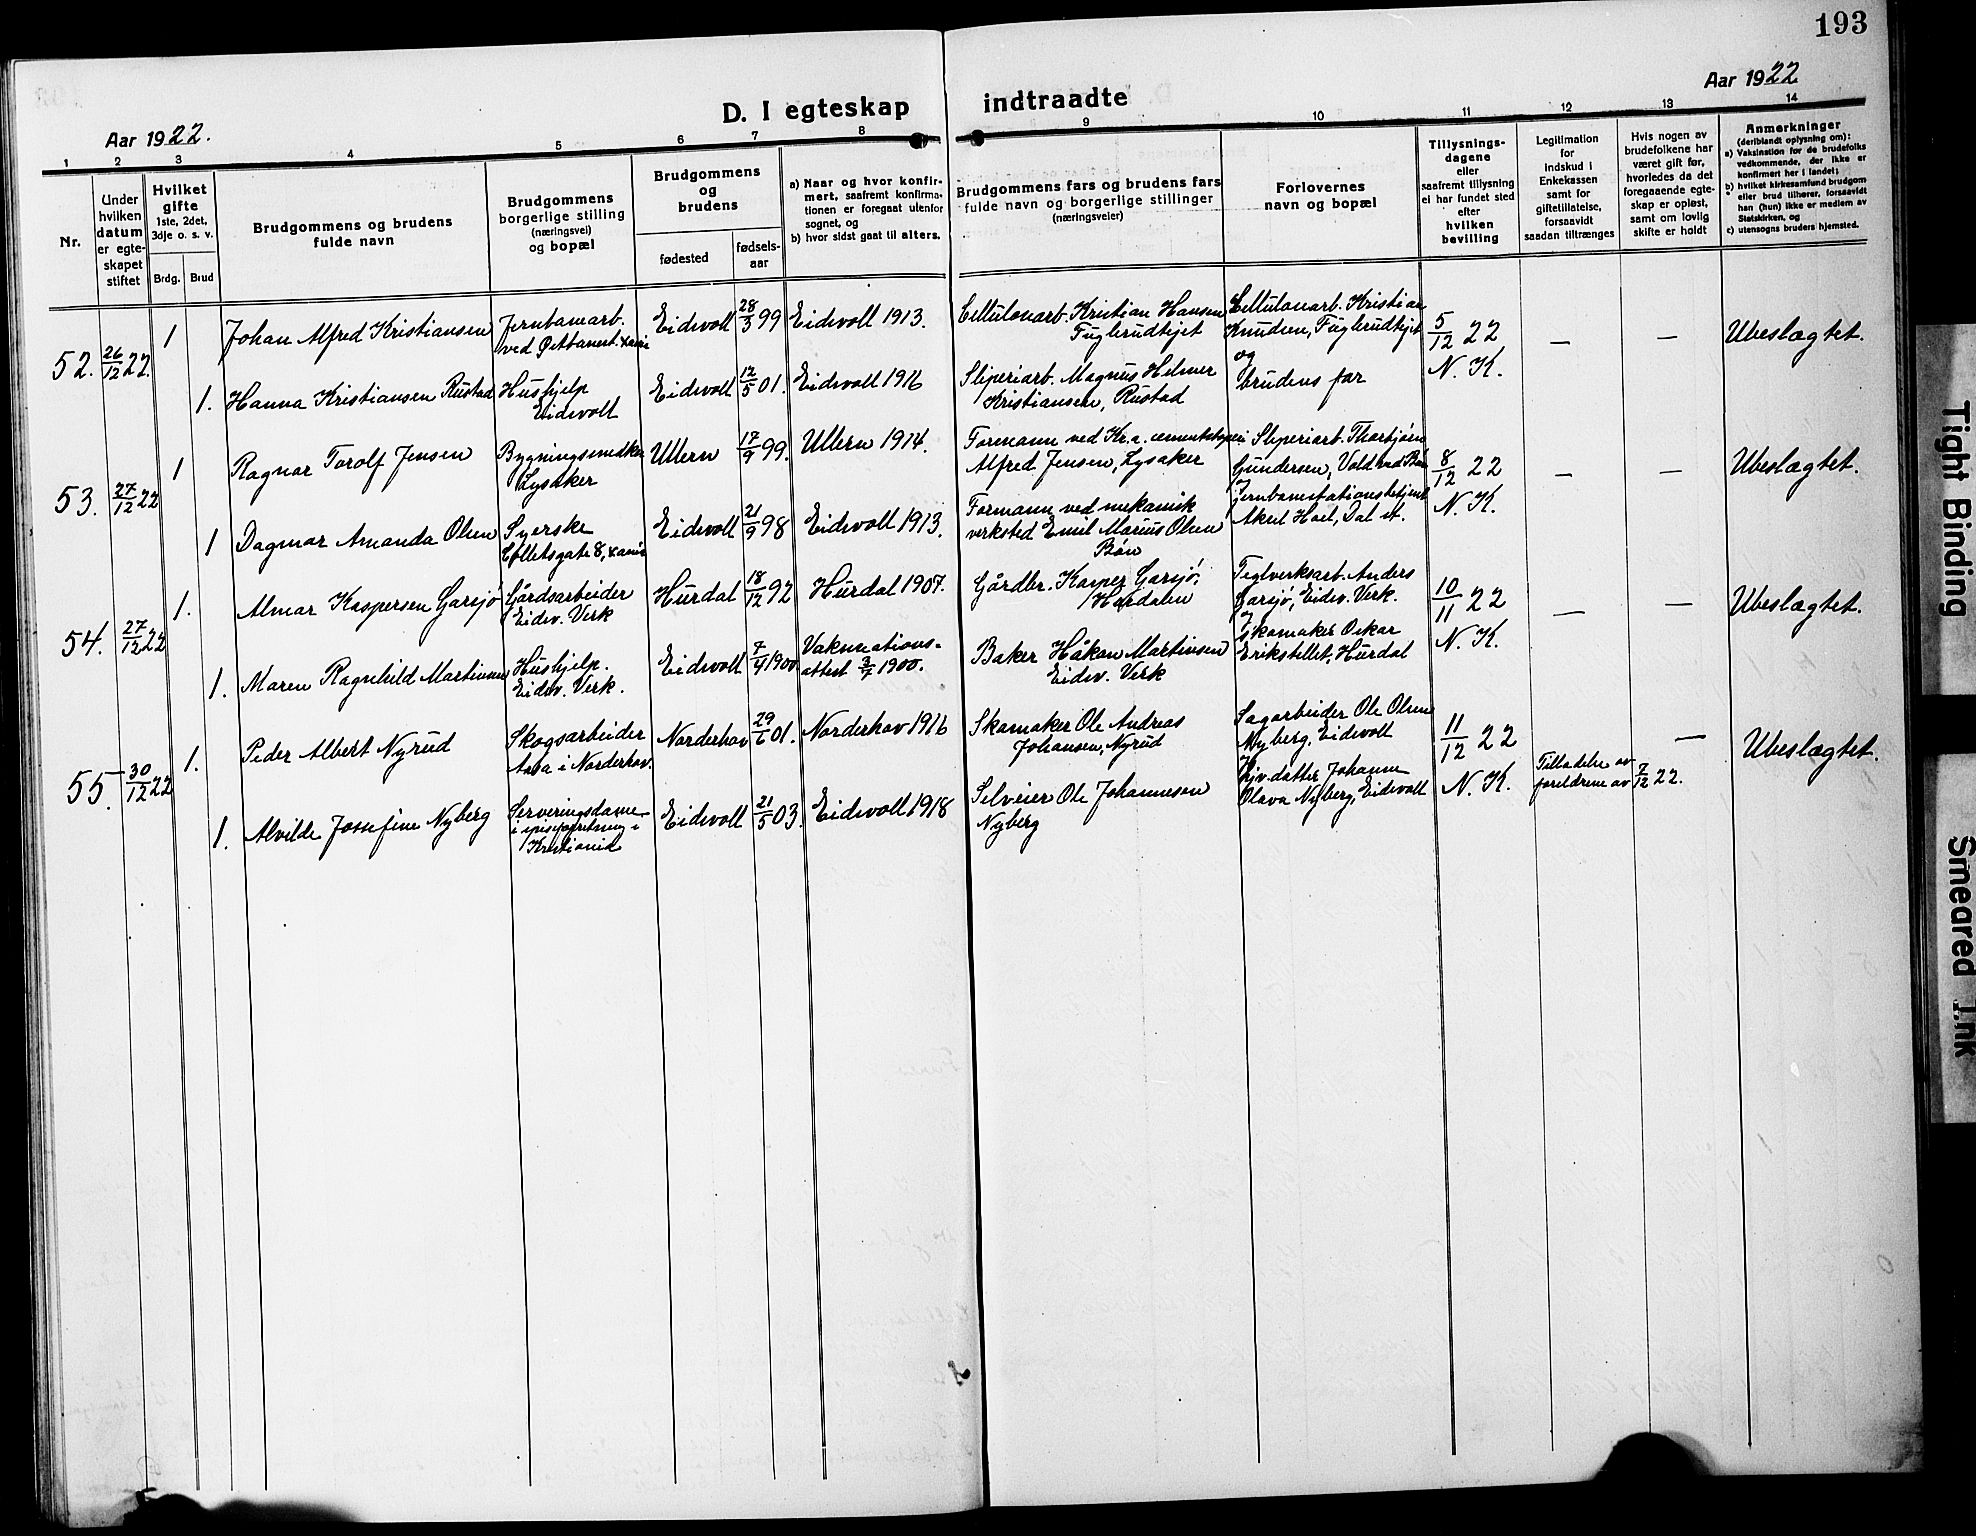 193
Aar 1922.
D. I egteskap indtraadte
Aar 1922
1 2 3 4 5 6 7 8 9 10 11 12 13 14
Nr.
Under hvilken datum er egteskapet stiftet
Hvilket gifte 1ste, 2det, 3dje o. s. v.
Brdg. Brud
Brudgommens og brudens fulde navn
Brudgommens borgerlige stilling (næringsvei) og bopæl
Brudgommens og brudens
fødested
fødsels-aar
a) Naar og hvor konfirmert, saafremt konfirmationen er foregaat utenfor sognet, og
b) hvor sidst gaat til alters.
Brudgommens fars og brudens fars fulde navn og borgerlige stillinger (næringsveier)
Forlovernes navn og bopæl
Tillysnings-dagene eller saafremt tillysning ei har fundet sted efter hvilken bevilling
Legitimation for indskud i Enkekassen samt for giftetillatelse, forsaavidt saadan tiltrænges
Hvis nogen av brudefolkene har været gift før, hvorledes da det foregaaende egteskap er opløst, samt om lovlig skifte er holdt
Anmerkninger (deriblandt oplysning om):
a) Vaksination for de brudefolks vedkommende, der ikke er konfirmert her i landet;
b) hvilket kirkesamfund brudgom eller brud tilhører, forsaavidt han (hun) ikke er medlem av Statskirken, og
c) utensogns bruders hjemsted.
52. 26/12 22.
1 Johan Alfred Kristiansen
Jernbanearb.
Eidsvoll 28/3 99 Eidsvoll 1913.
Cellulosearb. Kristian Hansen
Fuglerudhjet
Cellulosearb. Kristian
Knudsen, Fuglerudhjet
og
brudens far
5/12 22
N. K.
— —
Ubeslægtet.
1. Hanna Kristiansen Rustad
Hushjelp
Eidsvoll
Eidsvoll 12/5 01. Eidsvoll 1916
Sliperiarb. Magnus Helmer
Kristiansen, Rustad
53. 27/12 22
1 Ragnar Torolf Jensen
Bygningssnedker
Lysaker
Ullern 17/9 99. Ullern 1914.
Formann ved Kr.a. cementstøperi
Alfred Jensen, Lysaker
Sliperiarb. Thorbjørn
Gundersen, Vold ved Bøn
Jernbanestationsbetjent
Aksel Hoel, Dal st.
8/12 22
N. K.
— —
Ubeslægtet.
1 Dagmar Amanda Olsen
Syerske
Colletsgate 8, Xania
Eidsvoll 21/9 98 Eidsvoll 1913.
Formann ved mekanisk
verksted Emil Marius Olsen
Bøn
54. 27/12 22
1. Almar Kaspersen Garsjø
Gårdsarbeider
Eidsv. Verk
Hurdal 18/12 92 Hurdal 1907.
Gårdbr. Kasper Garsjø,
Hurdalen
Teglverksarb. Anders
Garsjø, Eidsv. Verk.
Skomaker Oskar
Erikstellet, Hurdal
10/11 22
N. K.
— —
Ubeslægtet.
1. Maren Ragnhild Martinsen
Hushjelp.
Eidsv. Verk.
Eidsvoll 7/4 1900 Vaksinations-
attest 3/7 1900.
Baker Håkon Martinsen
Eidsv. Verk
55. 30/12 22
1. Peder Albert Nyrud
Skogsarbeider
Aasa i Norderhov.
Norderhov 29/6 01. Norderhov 1916
Skomaker Ole Andreas
Johansen, Nyrud
Sagarbeider Ole Olsen
Nyberg, Eidsvoll
datter Johanne
Olava Nyberg, Eidsvoll
11/12 22
N. K.
Tilladelse av
foreldrene av 7/12 22.
—
Ubeslægtet.
1. Alvilde Jossefine Nyberg
Serveringsdame
i spiseforretning i
Kristiania
Eidsvoll 21/5 03. Eidsvoll 1918
Selveier Ole Johannesen
Nyberg
Tight Binding
Smeared Ink